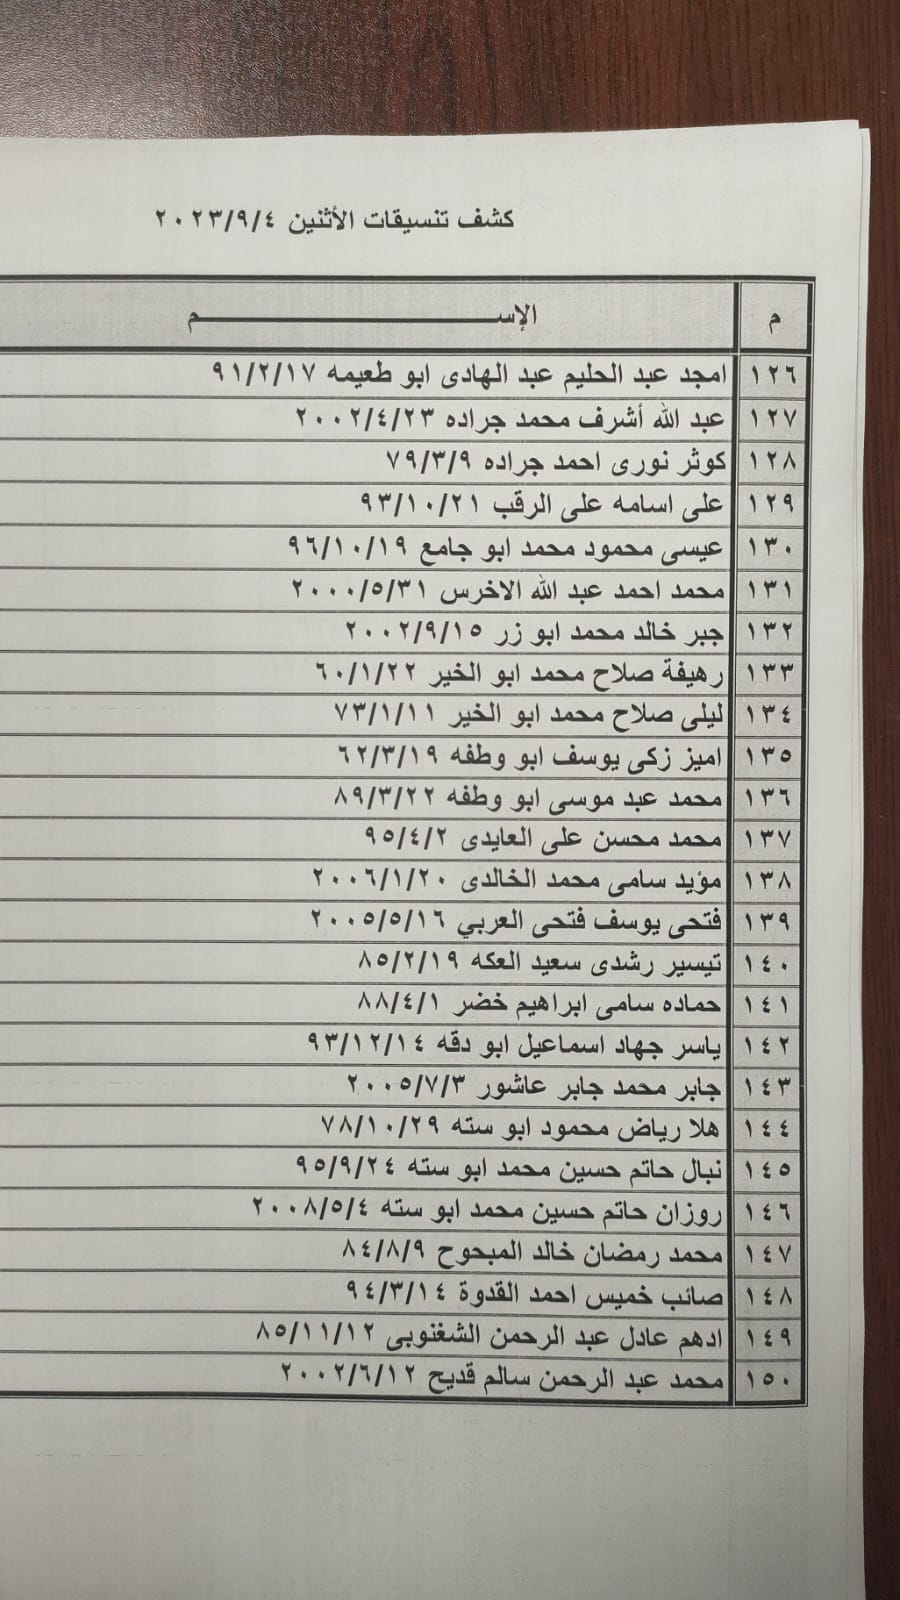 كشف تنسيقات الأثنين ٢٠٢٣/٩/٤
م الإســــــــم
١٢٦ امجد عبد الحليم عبد الهادى ابو طعيمه ٩١/٢/١٧
١٢٧ عبد الله أشرف محمد جراده ٢٠٠٢/٤/٢٣
١٢٨ كوثر نورى احمد جراده ٧٩/٣/٩
١٢٩ على اسامه على الرقب ٩٣/١٠/٢١
١٣٠ عيسى محمود محمد ابو جامع ٩٦/١٠/١٩
١٣١ محمد احمد عبد الله الاخرس ٢٠٠٠/٥/٣١
١٣٢ جبر خالد محمد ابو زر ٢٠٠٢/٩/١٥
١٣٣ رهيفة صلاح محمد ابو الخير ٦٠/١/٢٢
١٣٤ ليلى صلاح محمد ابو الخير ٧٣/١/١١
١٣٥ اميز زكى يوسف ابو وطفه ٦٢/٣/١٩
١٣٦ محمد عبد موسى ابو وطفه ٨٩/٣/٢٢
١٣٧ محمد محسن على العايدى ٩٥/٤/٢
١٣٨ مؤيد سامى محمد الخالدى ٢٠٠٦/١/٢٠
١٣٩ فتحى يوسف فتحى العربي ٢٠٠٥/٥/١٦
١٤٠ تيسير رشدى سعيد العكه ٨٥/٢/١٩
١٤١ حماده سامى ابراهيم خضر ٨٨/٤/١
١٤٢ ياسر جهاد اسماعيل ابو دقه ٩٣/١٢/١٤
١٤٣ جابر محمد جابر عاشور ٢٠٠٥/٧/٣
١٤٤ هلا رياض محمود ابو سته ٧٨/١٠/٢٩
١٤٥ نبال حاتم حسين محمد ابو سته ٩٥/٩/٢٤
١٤٦ روزان حاتم حسين محمد ابو سته ٢٠٠٨/٥/٤
١٤٧ محمد رمضان خالد المبحوح ٨٤/٨/٩
١٤٨ صائب خميس احمد القدوة ٩٤/٣/١٤
١٤٩ ادهم عادل عبد الرحمن الشغنوبى ٨٥/١١/١٢
١٥٠ محمد عبد الرحمن سالم قديح ٢٠٠٢/٦/١٢